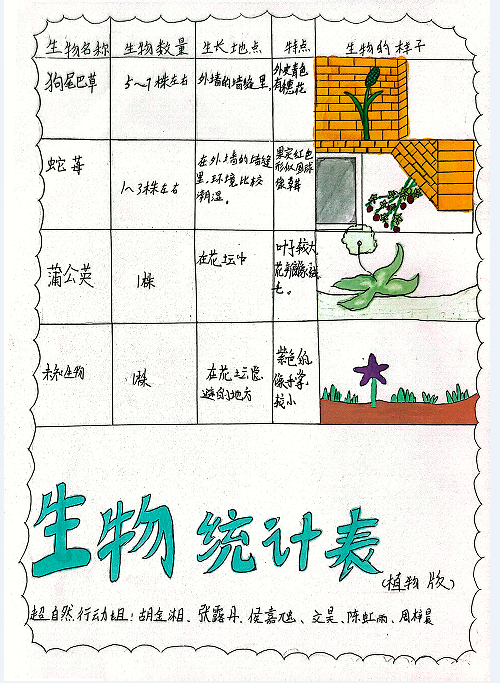 生物名称 生物数量 生长地点 特点 生物的样子
狗尾巴草 5~7株左右 外墙的墙缝里,
外皮青色
有穗花
蛇莓 1~3株左右
在外墙的墙缝
里,环境比较
潮湿。
果实红色
形似圆球
像草莓
蒲公英 1株 在花坛中
叶子较大
七。
未知生物 1株
在花坛隐
避的地方
紫色的,
较小
生物统计表
(植物版)
超自然行动组:胡金湘、张露丹、侯嘉、文昊、陈虹雨、周梓晨